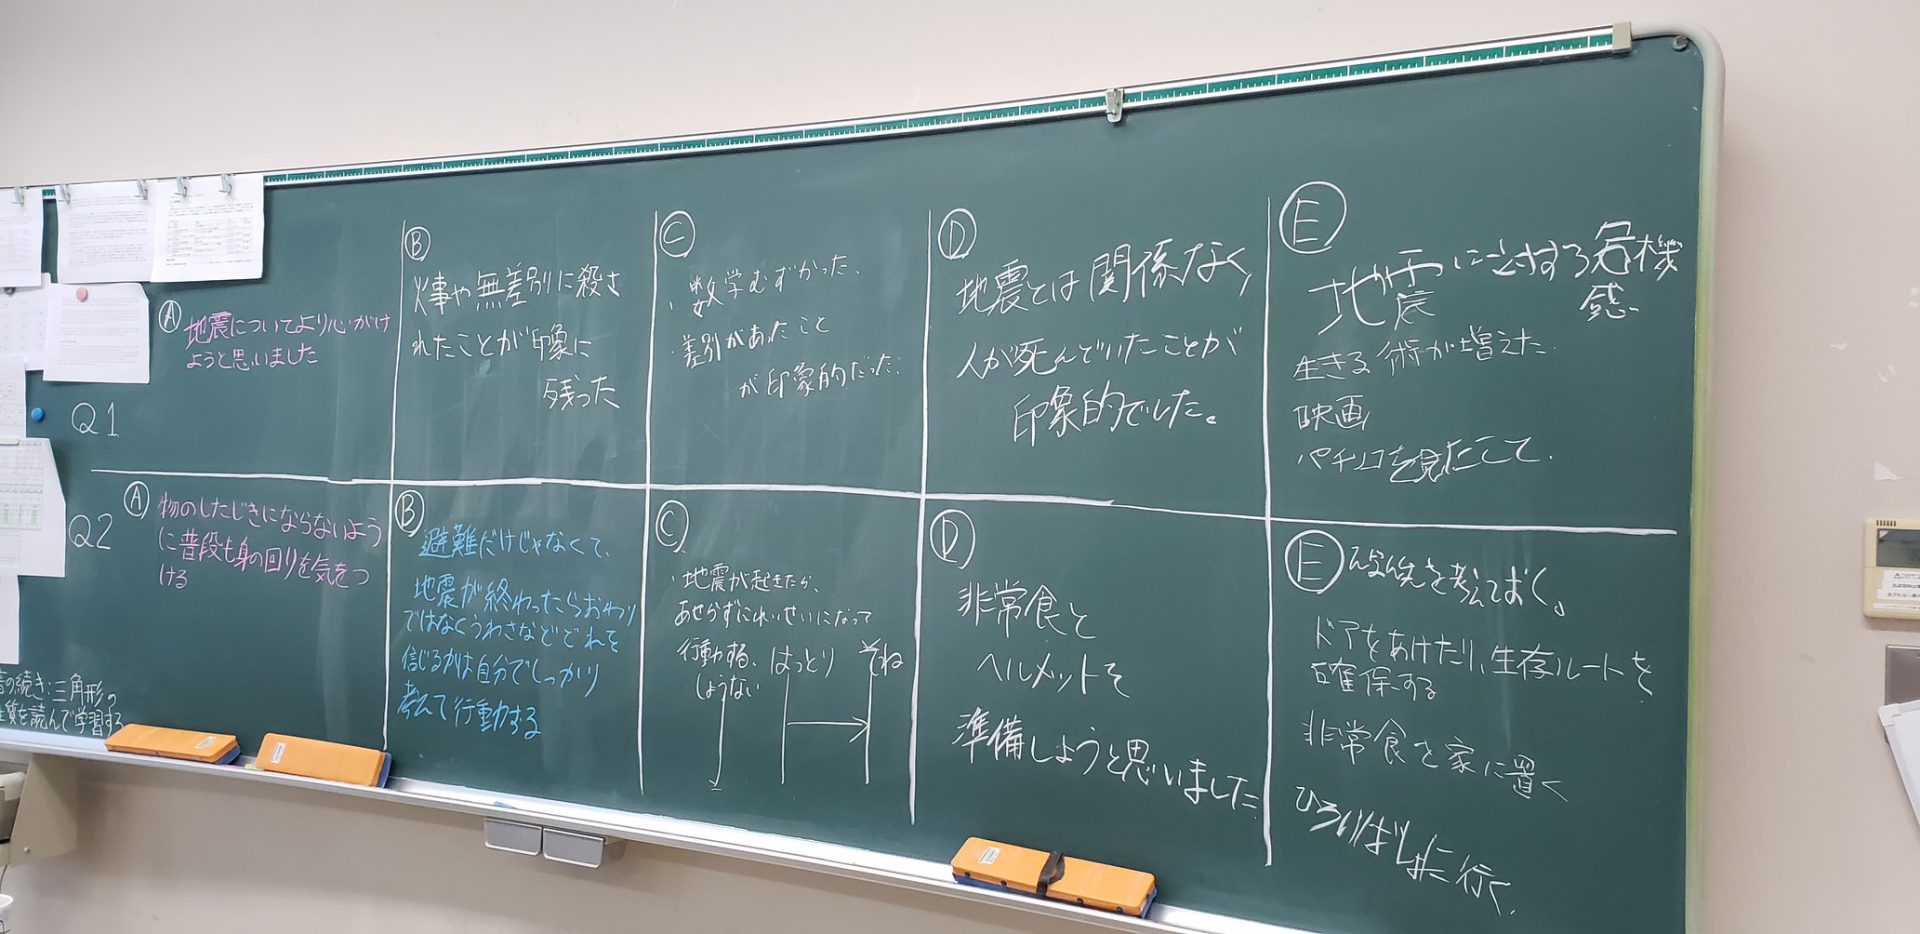 Q1
Ⓐ
地震についてより心がけ
ようと思いました
Ⓑ
火事や無差別に殺さ
れたことが印象に
残った
Ⓒ
・数学むずかった、
・差別があったこと
が印象的だった。
Ⓓ
地震とは関係なく
人が死んでいたことが
印象的でした。
Ⓔ
地震に対する危機
感
生きる術が増えた
映画
パチンコを見たこと
Q2
Ⓐ
物のしたじきにならないよう
に普段も身の回りを気をつ
ける
Ⓑ
避難だけじゃなくて、
地震が終わったらおわり
ではなくうわさなどどれを
信じるかは自分でしっかり
考えて行動する
Ⓒ
・地震が起きたら、
あせらずにれいせいになって
行動する、
しょうない
はっとり
そね
Ⓓ
非常食と
ヘルメットを
準備しようと思いました
Ⓔ
を考えておく。
ドアをあけたり、生存ルートを
確保する
非常食を家に置く
ひろいばしょに行く
の続き:三角形の
質を読んで学習する